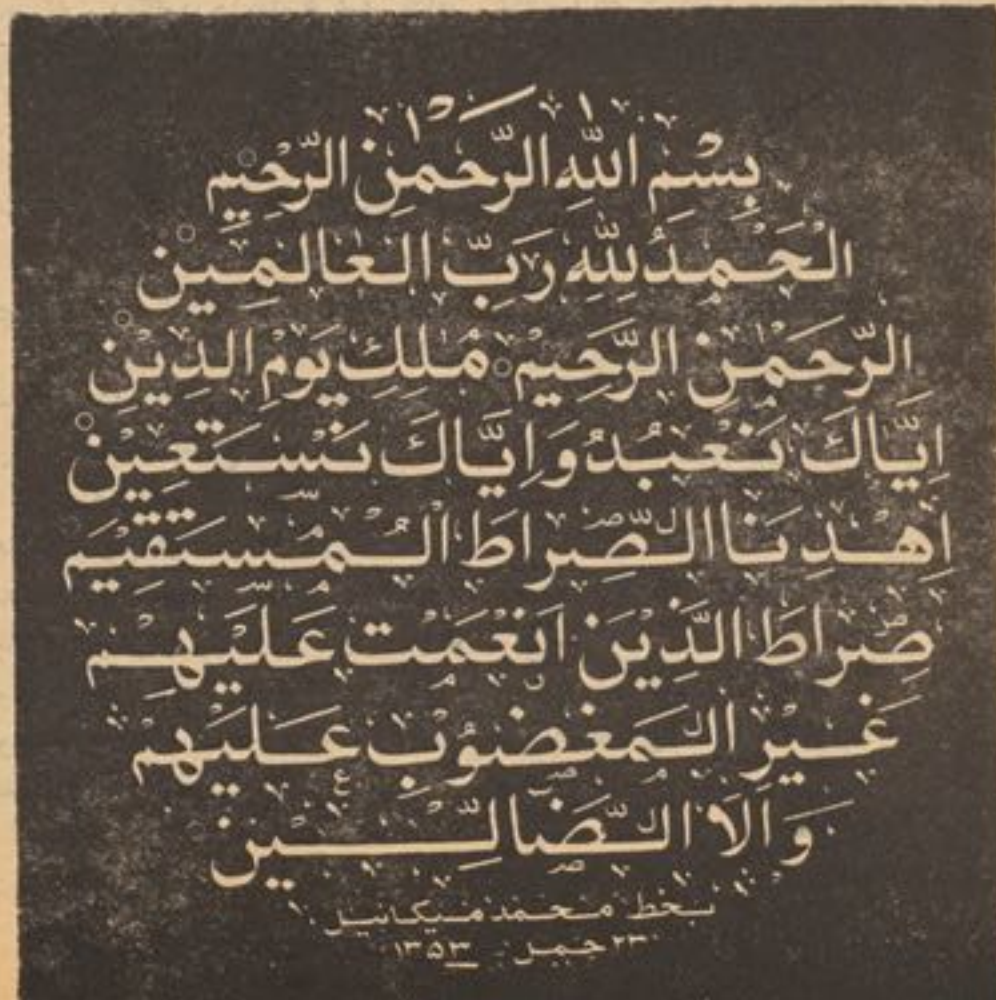 بِسْمِ اللّٰهِ الرَّحْمٰنِ الرَّحِيْمِ
الْحَمْدُ لِلّٰهِ رَبِّ الْعَالَمِيْنَ
الرَّحْمٰنِ الرَّحِيْمِ مٰلِكِ يَوْمِ الدِّيْنِ
اِيَّاكَ نَعْبُدُ وَ اِيَّاكَ نَسْتَعِيْنُ
اِهْدِنَا الصِّرَاطَ الْمُسْتَقِيْمَ
صِرَاطَ الَّذِيْنَ اَنْعَمْتَ عَلَيْهِمْ
غَيْرِ الْمَغْضُوْبِ عَلَيْهِمْ
وَالَا الضَّالِّيْنَ
بخط محمد میکائیل
۲۳ حمل ۱۳۵۳